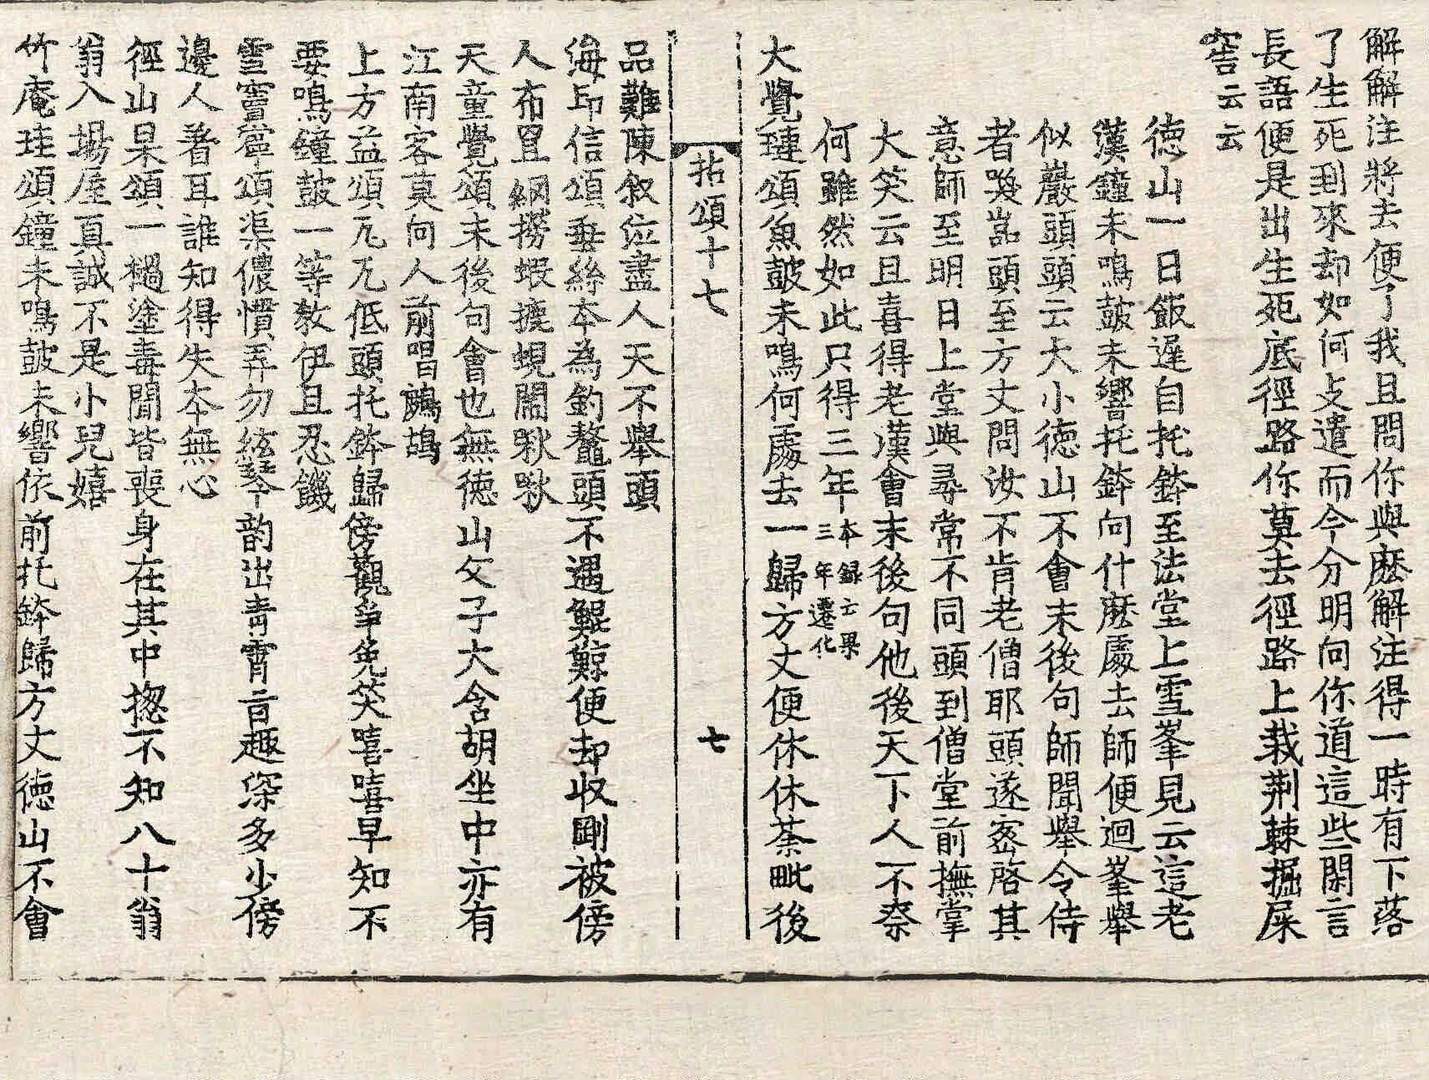 解解注將去便了我且問你與麽解注得一時有下落
了生死到來却如何支遣而今分明向你道這些閑言
長語便是出生死底徑路你莫去徑路上栽荆棘掘屎
窖云云
德山一日飯遲自托鉢至法堂上雪峯見云這老
漢鐘未鳴皷未響托鉢向什麽處去師便迴峯擧
似巖頭頭云大小德山不會末後句師聞擧令侍
者喚嵓頭至方丈問汝不肯老僧耶頭遂密啓其
意師至明日上堂與尋常不同頭到僧堂前撫掌
大笑云且喜得老漢會末後句他後天下人不奈
何雖然如此只得三年本録云果三年遷化
大覺璉頌魚皷未鳴何處去一歸方丈便休休荼毗後
拈頌十七
七
品難陳叙位盡人天不擧頭
海印信頌垂絲本為釣鼇頭不遇鯤鯨便却收剛被傍
人布罝網撈蝦摝蜆閙啾啾
天童覺頌末後句會也無德山父子大含胡坐中亦有
江南客莫向人前唱鷓鴣
上方益頌兀兀低頭托鉢歸傍觀爭免笑嘻嘻早知不
要鳴鐘皷一等敎伊且忍饑
雪竇寧頌渠儂慣弄勿絃琴韵出靑霄音趣深多少傍
邊人著耳誰知得失本無心
徑山杲頌一檛塗毒聞皆喪身在其中揔不知八十翁
翁入場屋真誠不是小兒嬉
竹庵珪頌鐘未鳴皷未響依前托鉢歸方丈德山不會